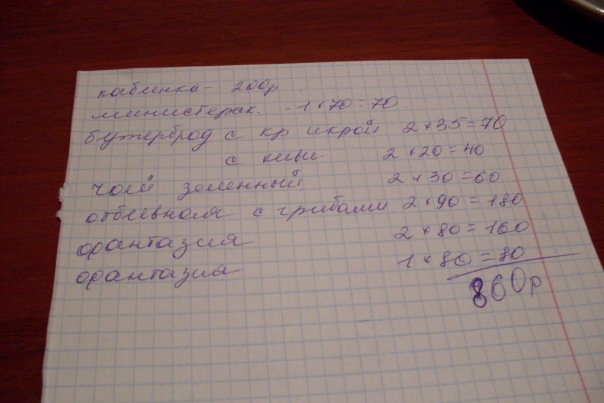 кабинка - 200р.
министерск. - 1 × 70 = 70.
бутерброд с кр икрой 2 × 35 = 70
с киви 2 × 20 = 40
чай зеленный 2 × 30 = 60
отбивная с грибами 2 × 90 = 180
фантазия 2 × 80 = 160
фантазия 1 × 80 = 80
860р